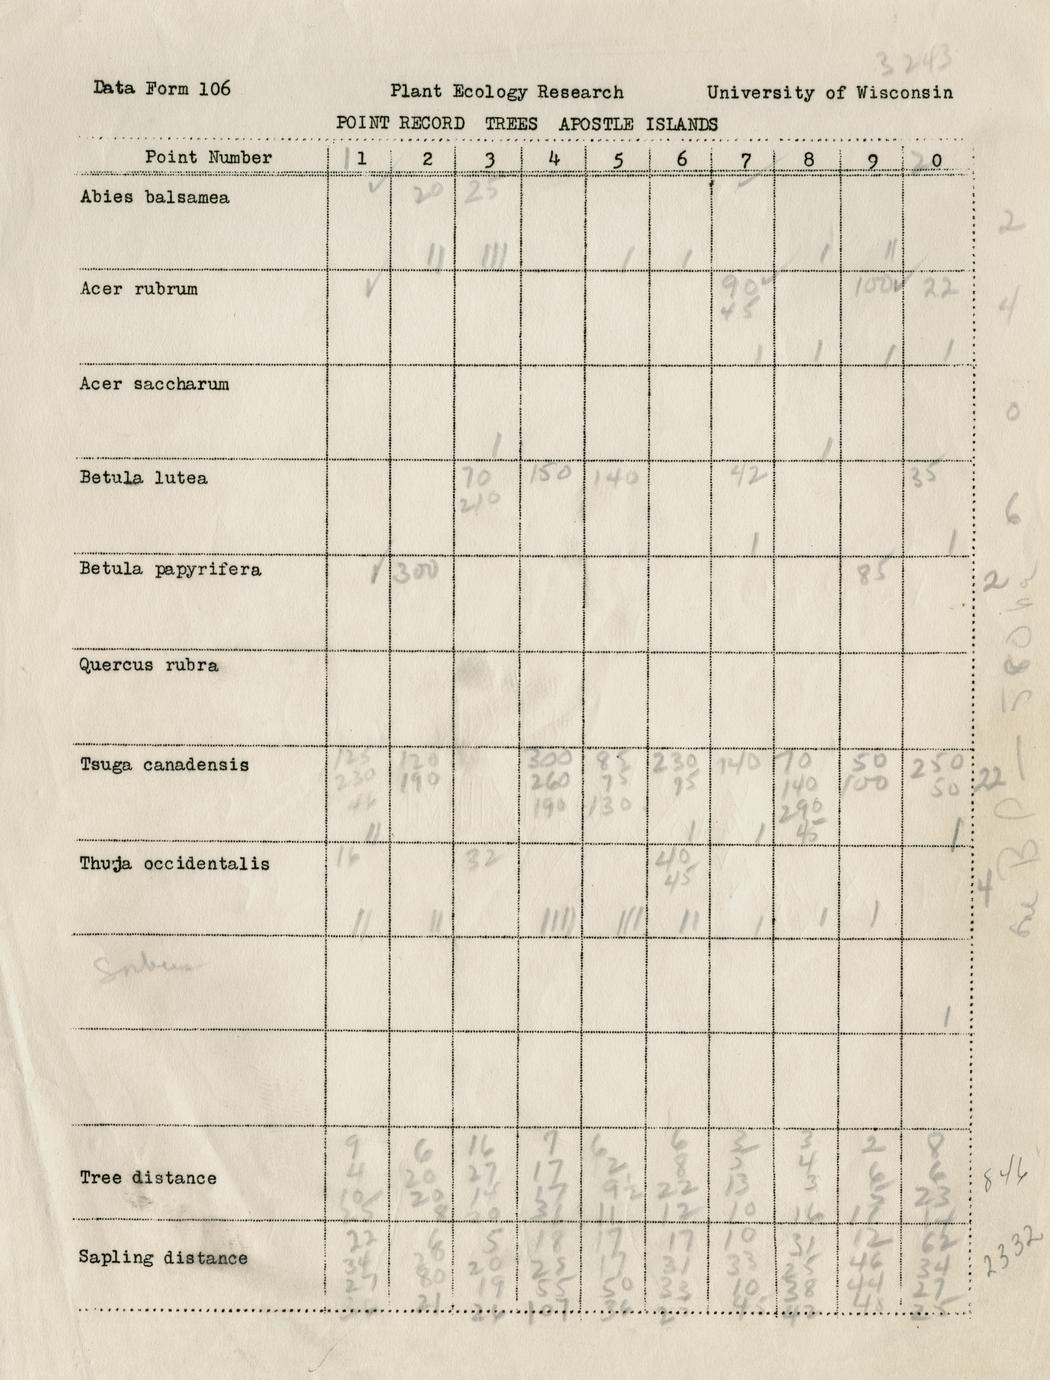 3243
Data Form 106 Plant Ecology Research University of Wisconsin
POINT RECORD TREES APOSTLE ISLANDS
Point Number 1 2 3 4 5 6 7 8 9 0
Abies balsamea 20 25 2
Acer rubrum 90 100 22 4
45
Acer saccharum 0
Betula lutea 70 150 140 42 35
210 6
Betula papyrifera 300 85 2
Quercus rubra
Tsuga canadensis 125 120 300 85 230 140 70 50 250
230 190 260 75 95 140 100 50 22
46 190 130 290
45
Thuja occidentalis 16 32 40
45 4
Sorbus
9 6 16 7 6 6 3 2 8
Tree distance 4 20 27 17 8 4 6 6 846
20 22 13 3 23
8 31 11 12 10 16 17
22 6 5 18 17 17 10 31 12 62
Sapling distance 34 20 25 17 31 33 25 46 34 2332
27 80 19 55 50 33 10 38 44 27
21 26 107 36 45 42 48 25